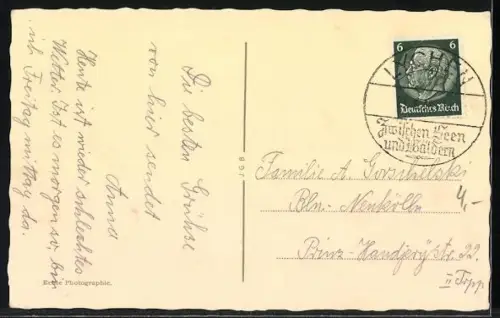 Die besten Grühse
von hier sendet
Anna
Heute ist wieder schlechtes
Wetter. Ist es morgen so, bin
ich Freitag mittag da.
Echte Photographie.
6 6
Deutsches Reich
Zwischen Seen
und Wäldern
Familie A.
Bln. Neukölln
Prinz-Handjery Str. 22
II Trpp.
4,-